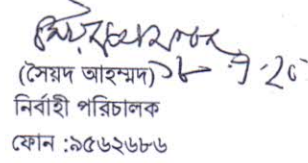 (সৈয়দ আহম্মদ)
নির্বাহী পরিচালক
ফোন :৯৫৬২৬৮৬